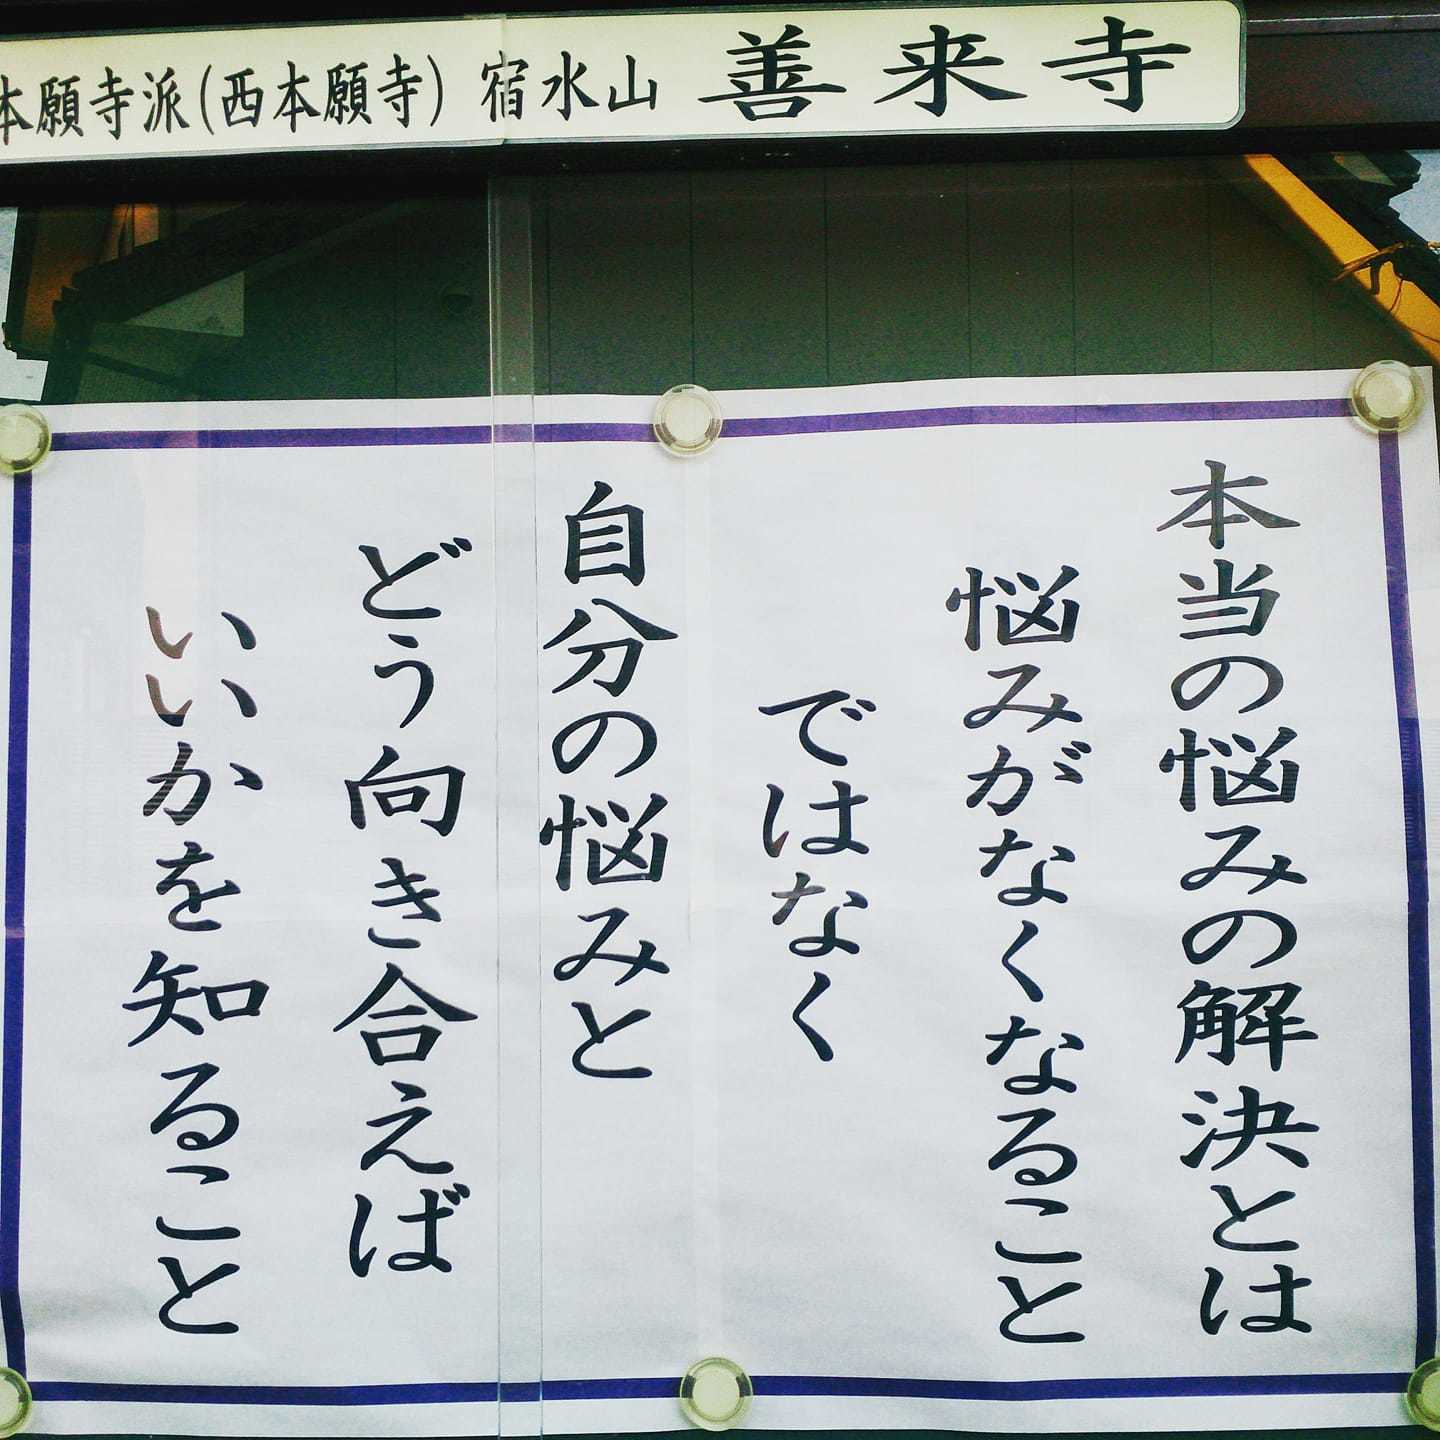 本願寺派(西本願寺) 宿水山 善来寺
本当の悩みの解決とは
悩みがなくなること
ではなく
自分の悩みと
どう向き合えば
いいかを知ること